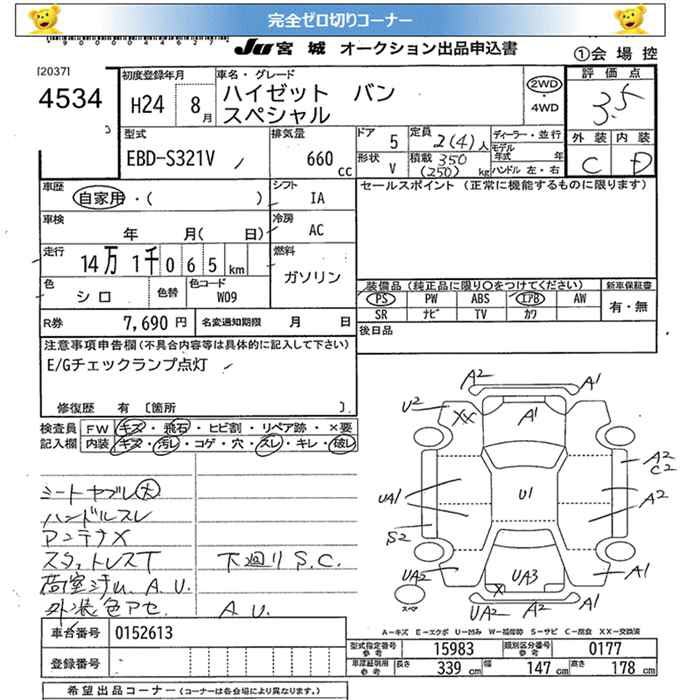 完全ゼロ切りコーナー
JU 宮城 オークション出品申込書
①会場控
[2037]
4534
初度登録年月
H24 8月
車名・グレード
ハイゼット バン
スペシャル
2WD
・
4WD
評価点
3.5
外装 内装
C D
型式
EBD-S321V
排気量
660 cc
ドア 5
形状 V
定員 2(4)人
積載 350
(250) kg
ディーラー・並行
モデル年式 年
ハンドル 左・右
車歴
自家用・( )
シフト IA
セールスポイント (正常に機能するものに限ります)
車検
年 月( 日)
冷房 AC
走行
14万 1千065km
燃料
ガソリン
色 シロ
色替
色コード W09
装備品 (純正品に限り〇をつけてください)
PS PW ABS エアB AW
SR ナビ TV カワ
新車保証書
有・無
R券 7,690円
名変通知期限 月 日
後日品
注意事項申告欄(不具合内容等は具体的に記入して下さい)
E/Gチェックランプ点灯
修復歴 有 〔箇所 〕
検査員記入欄
FW キズ・飛石・ヒビ割・リペア跡・×要
内装 キズ・汚レ・コゲ・穴・スレ・キレ・破レ
シートヤブレ大
ハンドルスレ
アンテナX
スタットレスT 下廻りS.C.
荷室汚れ A.U.
外装色アセ A.U.
A2
A1
U2
XX
A1
A2
C2
UA1
U1
A2
S2
UA2
UA3
X
A1
UA2
A2
A1
スペア
A-キズ E-エクボ U-凹み W-補修跡 S-サビ C-腐食 XX-交換済
車台番号 0152613
登録番号
型式指定番号 参考 15983
類別区分番号 参考 0177
車庫証明用 参考 長さ 339cm 幅 147cm 高さ 178cm
希望出品コーナー(コーナーは各会場により異なります。)